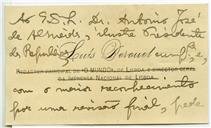 Ao Ex.mo Sr. Dr. Antonio José
de Almeida, ilustre Presidente
da Republica,
Luís Derouet
REDACTOR PRINCIPAL DE «O MUNDO», DE LISBOA E DIRECTOR GERAL
DA IMPRENSA NACIONAL DE LISBOA
com o maior reconhecimento
por uma revisão final, pede